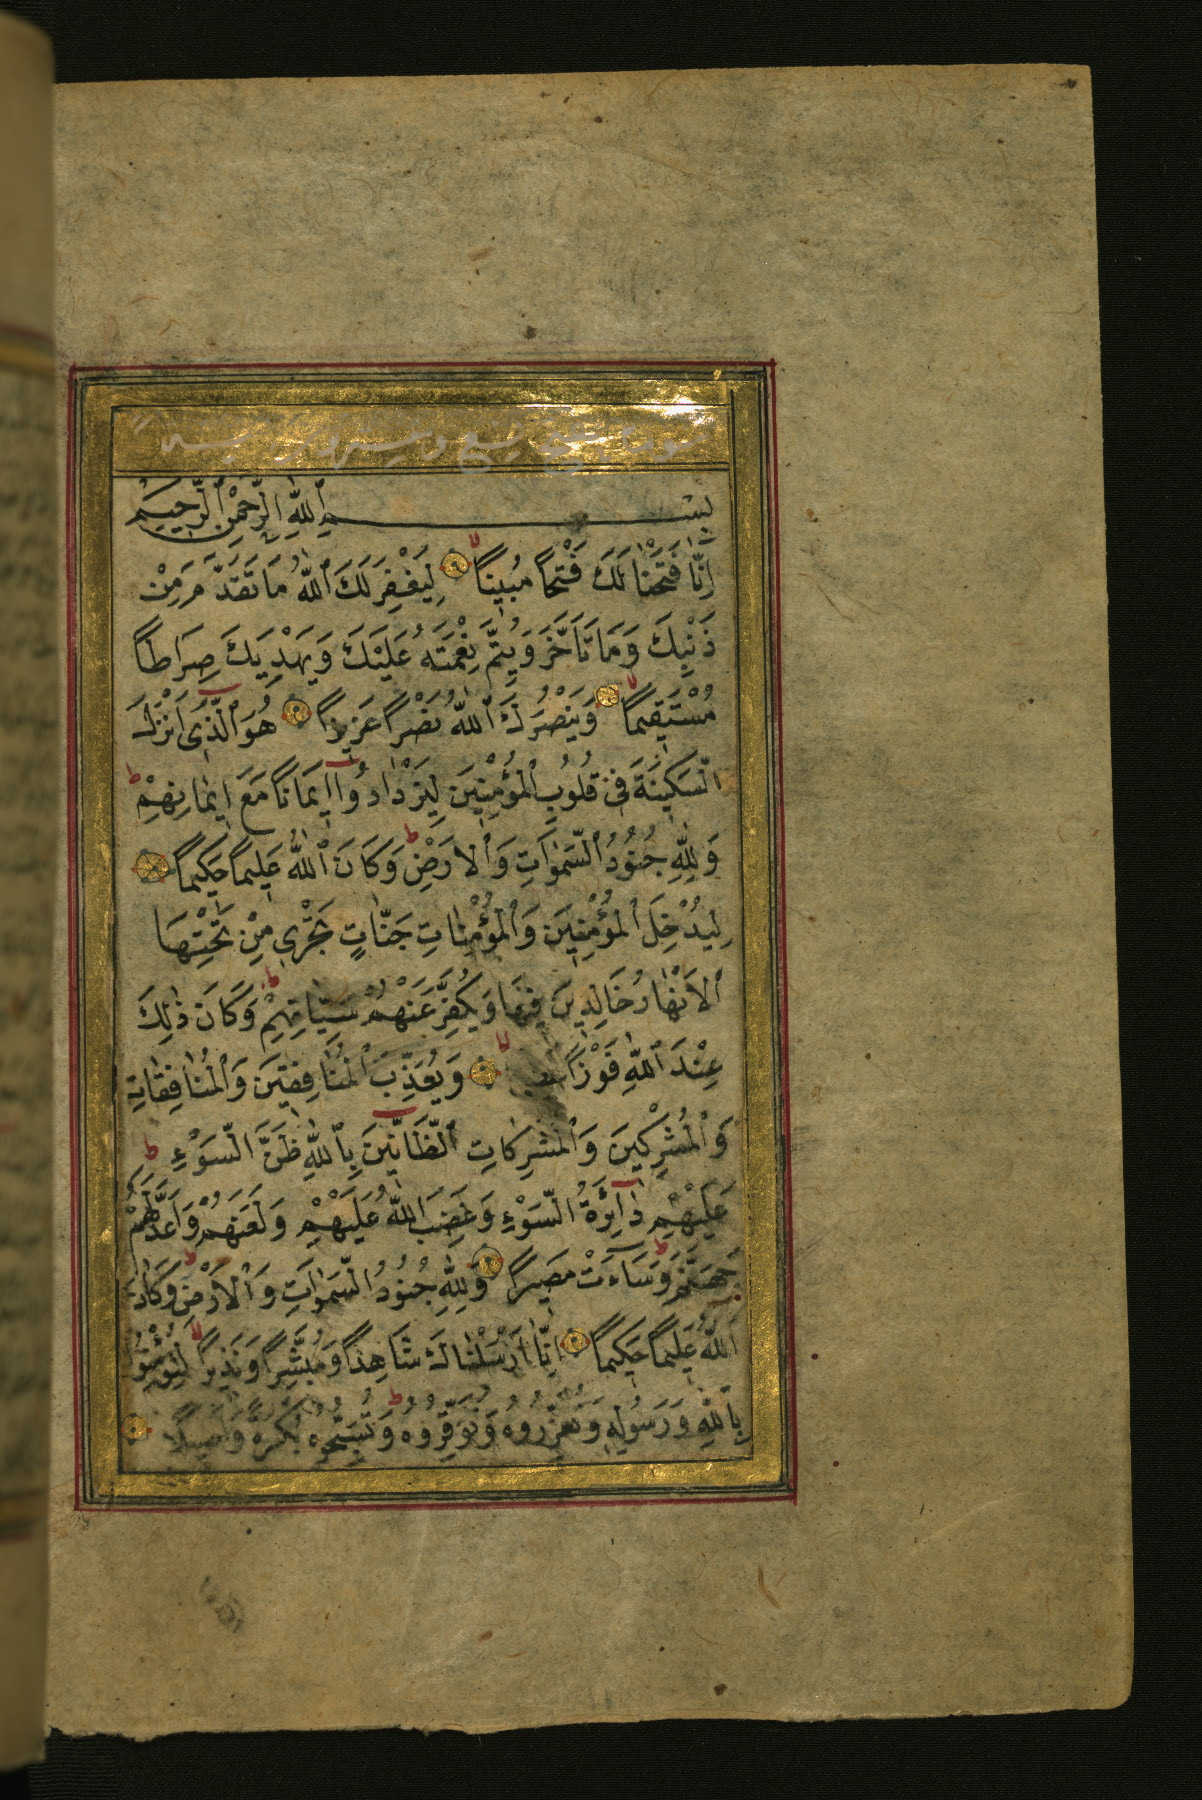 سورة الفتح تسع وعشرون
بسم الله الرحمن الرحيم
اِنَّا فَتَحْنَا لَكَ فَتْحًا مُبِينًا لِيَغْفِرَ لَكَ ٱللّٰهُ مَا تَقَدَّمَ مِنْ
ذَنْبِكَ وَمَا تَاَخَّرَ وَيُتِمَّ نِعْمَتَهُ عَلَيْكَ وَيَهْدِيَكَ صِرَاطًا
مُسْتَقِيمًا وَيَنْصُرَكَ ٱللّٰهُ نَصْرًا عَزِيزًا هُوَ ٱلَّذِى اَنْزَلَ
ٱلسَّكِينَةَ فِى قُلُوبِ ٱلْمُؤْمِنِينَ لِيَزْدَادُوا اِيمَانًا مَعَ اِيمَانِهِمْ
وَلِلّٰهِ جُنُودُ ٱلسَّمٰوَاتِ وَٱلْاَرْضِ وَكَانَ ٱللّٰهُ عَلِيمًا حَكِيمًا
لِيُدْخِلَ ٱلْمُؤْمِنِينَ وَٱلْمُؤْمِنَاتِ جَنَّاتٍ تَجْرِى مِنْ تَحْتِهَا
ٱلْاَنْهَارُ خَالِدِينَ فِيهَا وَيُكَفِّرَ عَنْهُمْ سَيِّاٰتِهِمْ وَكَانَ ذٰلِكَ
عِنْدَ ٱللّٰهِ فَوْزًا وَيُعَذِّبَ ٱلْمُنَافِقِينَ وَٱلْمُنَافِقَاتِ
وَٱلْمُشْرِكِينَ وَٱلْمُشْرِكَاتِ ٱلظَّانِّينَ بِٱللّٰهِ ظَنَّ ٱلسَّوْءِ
عَلَيْهِمْ دَآئِرَةُ ٱلسَّوْءِ وَغَضِبَ ٱللّٰهُ عَلَيْهِمْ وَلَعَنَهُمْ وَاَعَدَّ لَهُمْ
جَهَنَّمَ وَسَآءَتْ مَصِيرًا وَلِلّٰهِ جُنُودُ ٱلسَّمٰوَاتِ وَٱلْاَرْضِ وَكَانَ
ٱللّٰهُ عَلِيمًا حَكِيمًا اِنَّا اَرْسَلْنَاكَ شَاهِدًا وَمُبَشِّرًا وَنَذِيرًا لِتُؤْمِنُوا
بِاللّٰهِ وَرَسُولِهِ وَتُعَزِّرُوهُ وَتُوَقِّرُوهُ وَتُسَبِّحُوهُ بُكْرَةً وَاَصِيلًا